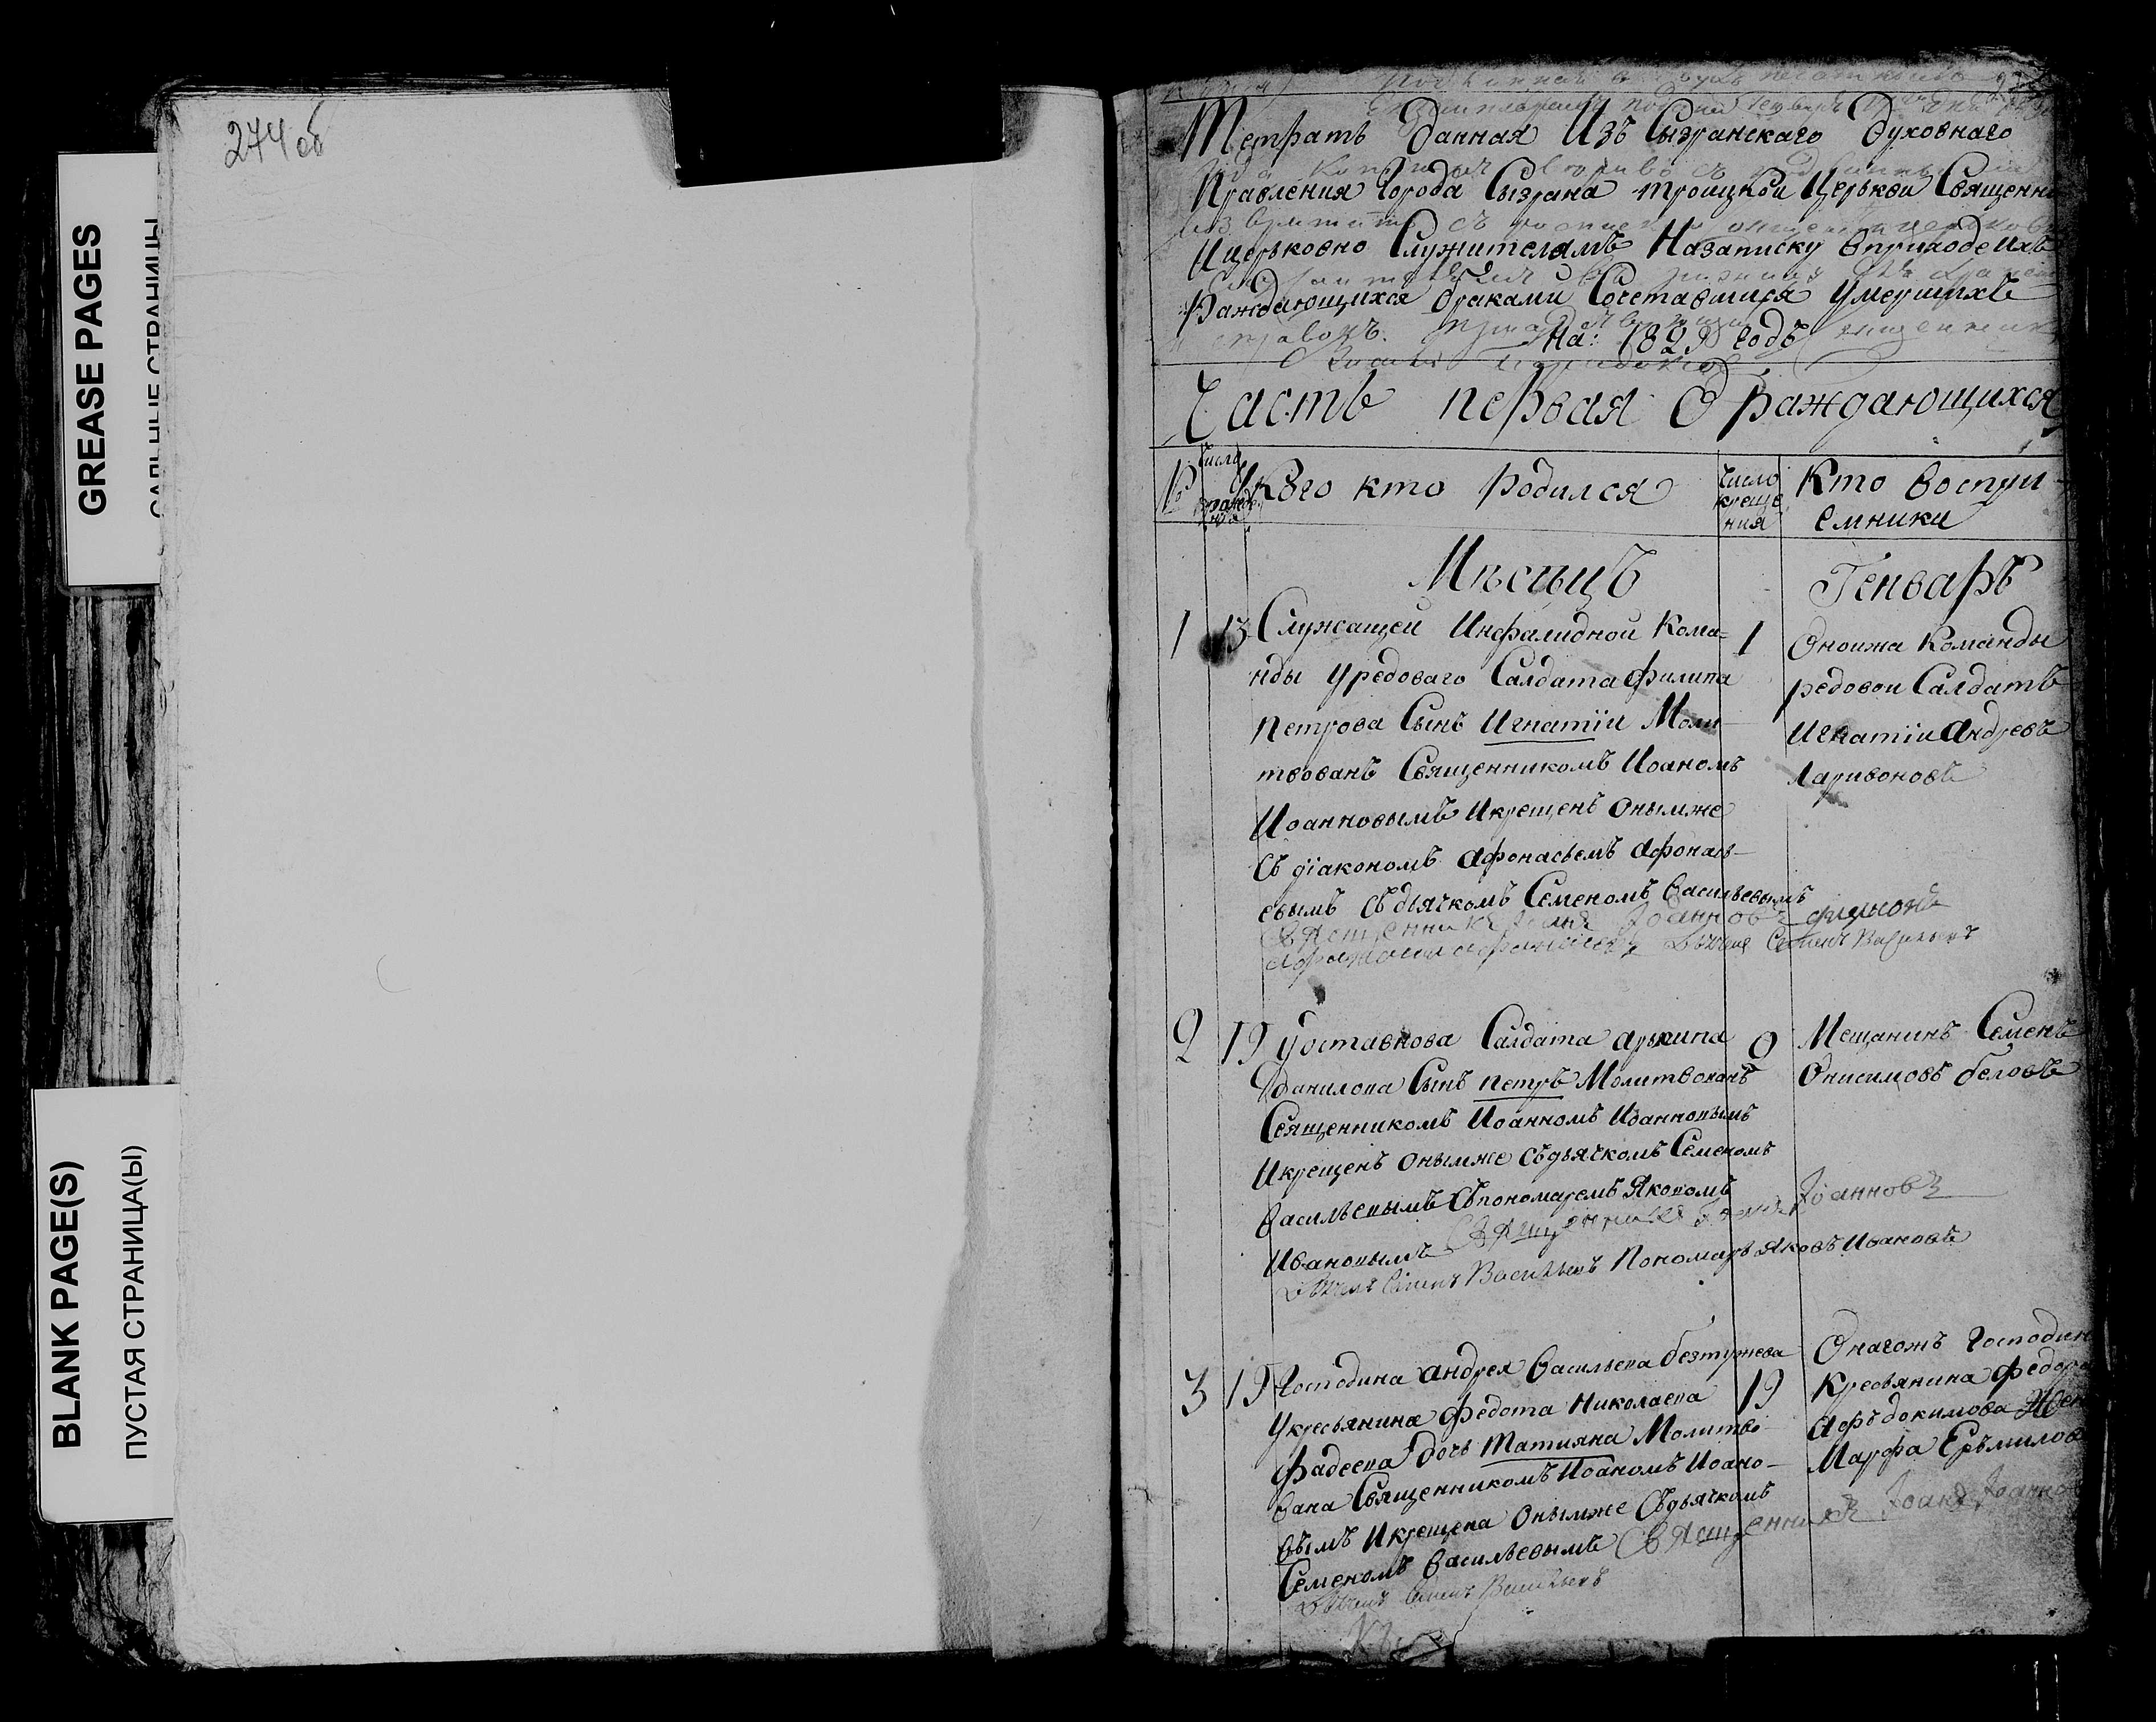 GREASE PAGES
САЛЬНЫЕ СТРАНИЦЫ
BLANK PAGE(S)
ПУСТАЯ СТРАНИЦА(Ы)
274 об
Тетрать данная Изъ Сызранскаго Духовнаго
Правления города Сызрана троицкой Церькви Священно
Ицерьковно Служителямъ Назаписку вприходе ихъ
Раждающихся браками Сочетавшихся Умершихъ
На: 1829 годъ
Часть первая О раждающихся
№ число рождения У Кого кто родился число крещения Кто воспри-
емники
Мѣсяцъ Генварь
1 13 Служащей Инфалидной Кома-
нды Урядоваго Салдата филипа
петрова Сынъ Игнатїи Моли-
твованъ Священникомъ Иоаномъ
Иоанновымъ Икрещенъ Онымже
Съ діакономъ Афонасьемъ Афонась-
евымъ Съ дьячкомъ Семеномъ Васильевымъ
Священникъ Іоанъ Іоанновъ
Дьячекъ Семенъ Васильевъ
1 Оноижа Команды
редовои Салдатъ
Игнатїи Андреевъ
Ларивоновъ
2 19 Уоставнова Салдата архипа
Данилова Сынъ петръ Молитвованъ
Священникомъ Иоанномъ Иоанновымъ
Икрещенъ Онымже Съдьячкомъ Семеномъ
Васильевымъ Съпономаремъ Яковомъ
Ивановымъ Священникъ Іоанъ Іоанновъ
Дьячекъ Семенъ Васильевъ Пономарь Яковъ Ивановъ
Мещанинъ Семенъ
Онисимовъ беловъ
3 19 Господина Андрея Васильева безтужева
Укресьянина Федота Николаева
Фадеева дочь Татияна Молитво-
вана Священникомъ Иоаномъ Иоано-
вымъ Икрещена Онымже Съдьячкомъ
Семеномъ Васильевымъ Священникъ Іоанъ Іоанно
Дьячекъ Семенъ Васильевъ
19 Онагожъ господин
Кресьянина Федора
Афъдокимова Жен
Марфа Еръмилов